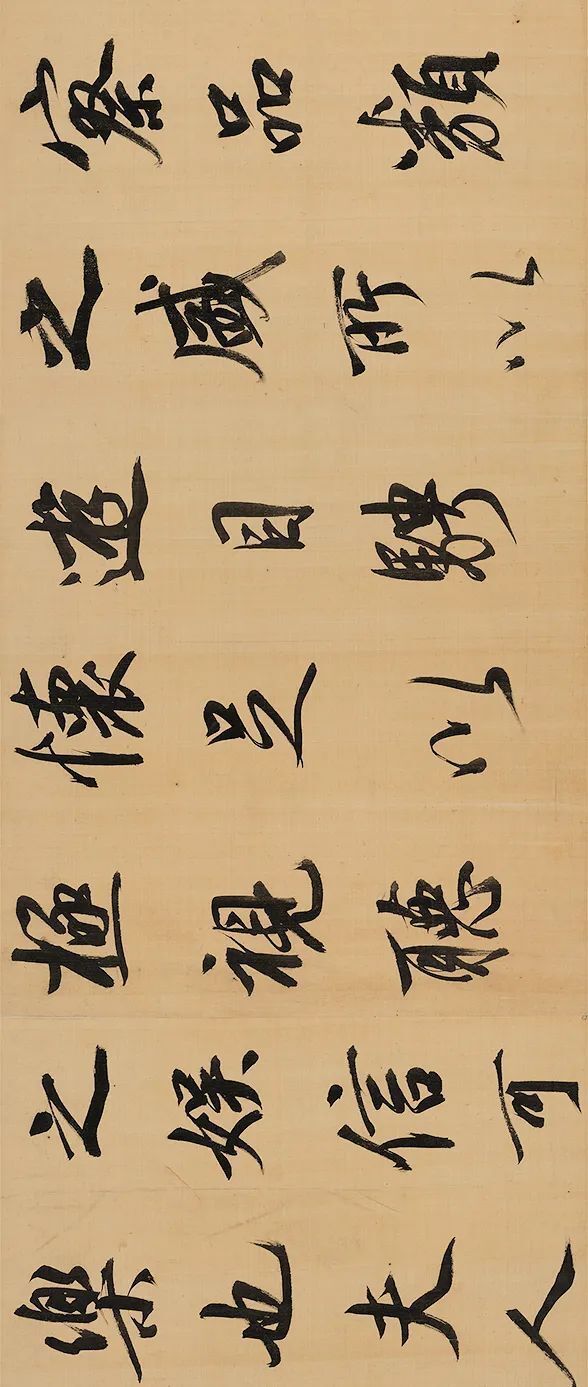 察品類
之盛所以
遊目騁
懷足以
極視聽
之娛信可
樂也夫人